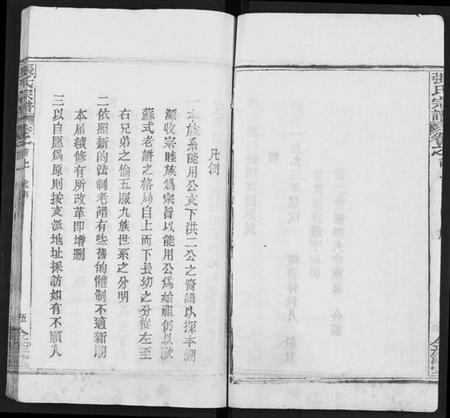 凡例
一本族系能用公支下洪二公之裔譜以探本溯
源收宗睦族為宗旨以能用公為始祖仍以歐
蘇式老譜之格局自上而下長幼之分從左至
右兄弟之倫五服九族世系之分明
二依照新的法制老譜有些舊的體制不適新潮
本屆續修有所改革即增刪
三以自愿為原則按支派地址採訪如有不願入
張氏宗譜
卷之首上
凡例
五
張氏宗譜